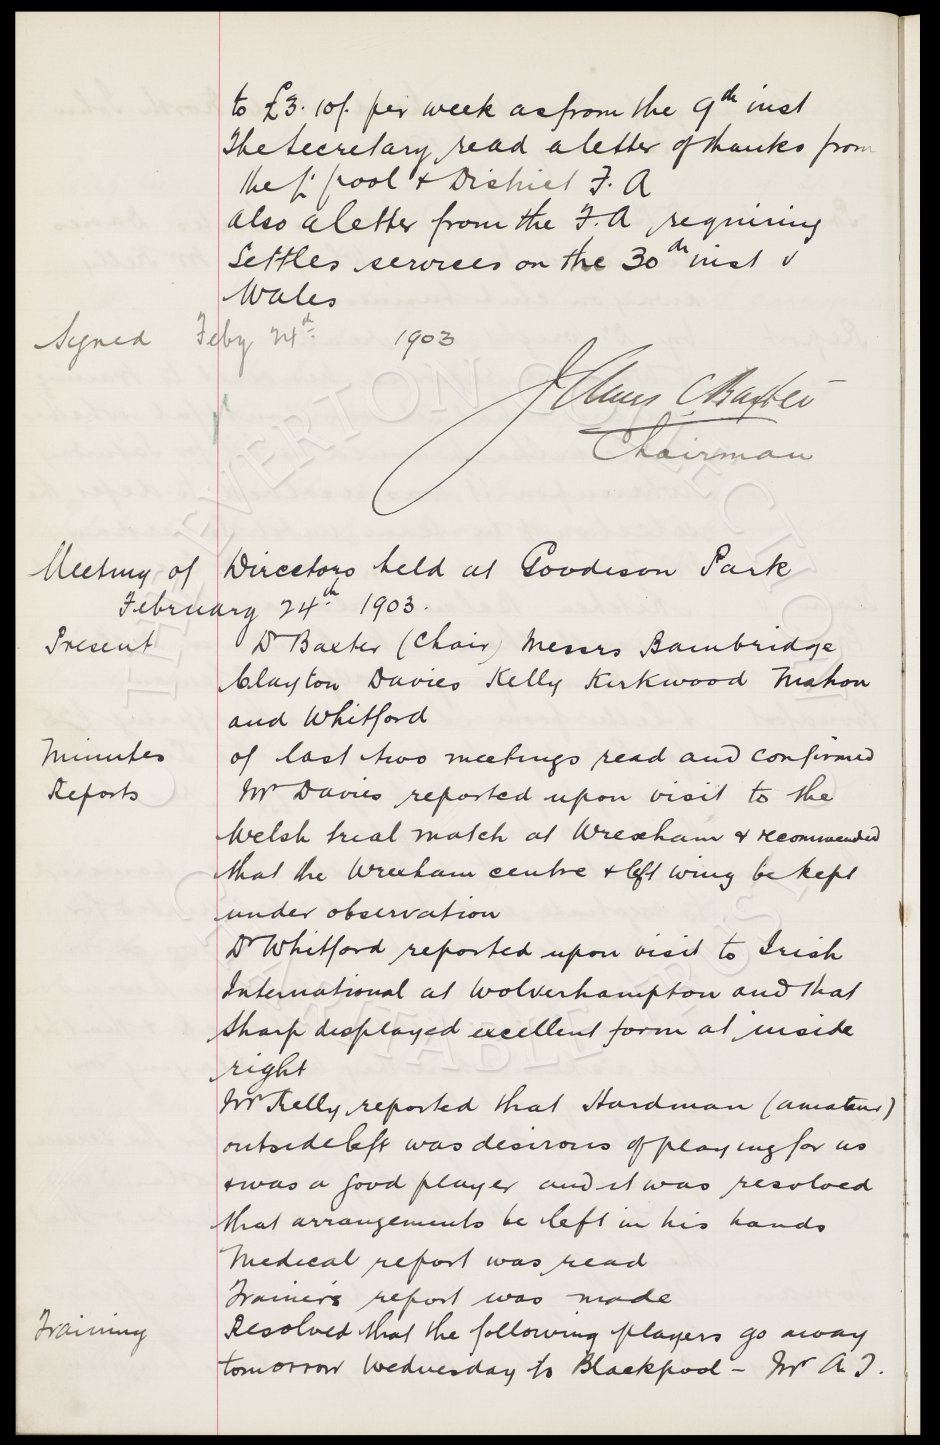 to £3. 10/. per week as from the 9th inst
The Secretary read a letter of thanks from
the L'pool & District F. A
also a letter from the F. A requiring
Settles services on the 30th inst v
Wales
Signed Feby 24th 1903
James C Baxter
Chairman
Meeting of Directors held at Goodison Park
February 24th 1903.
Present Dr Baxter (Chair) Messrs Bainbridge
Clayton Davies Kelly Kirkwood Mahon
and Whitford
Minutes of last two meetings read and confirmed
Reports Mr Davies reported upon visit to the
Welsh trial match at Wrexham & recommended
that the Wrexham centre & left wing be kept
under observation
Dr Whitford reported upon visit to Irish
International at Wolverhampton and that
Sharp displayed excellent form at inside
right
Mr Kelly reported that Hardman (amateur)
outside left was desirous of playing for us
& was a good player and it was resolved
that arrangements be left in his hands
Medical report was read
Trainers report was made
Training Resolved that the following players go away
tomorrow Wednesday to Blackpool - Mr A. J.
THE EVERTON COLLECTION CHARITABLE TRUST